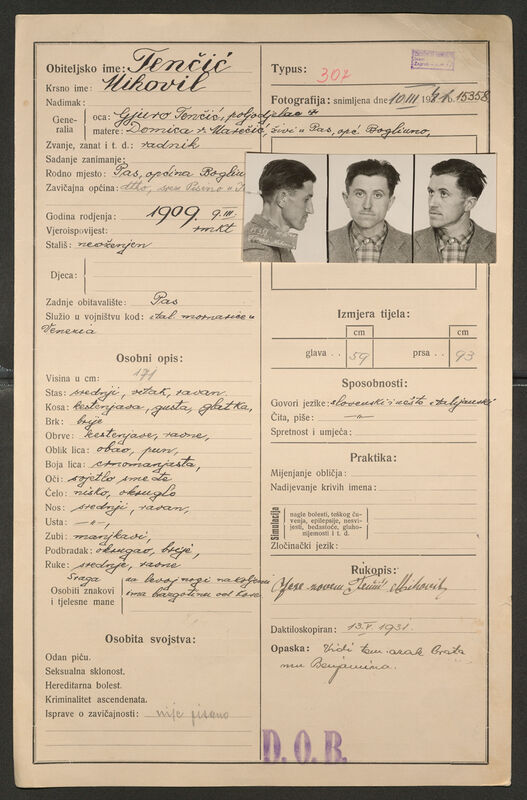 Obiteljsko ime: Tenčić
Krsno ime: Mihovil
Nadimak:
Generalia
oca: Gjuro Tenčić, poljodjelac i
matere: Domica r. Matečić, živi u Pas, opć. Bogliuno,
Zvanje, zanat i t. d.: radnik
Sadanje zanimanje:
Rodno mjesto: Pas, općina Bogliuno
Zavičajna općina: itto,
Godina rodjenja: 1909. 9. III.
Vjeroispovijest: rmkt
Stališ: neoženjen
Djeca:
Zadnje obitavalište: Pas
Služio u vojništvu kod: ital. mornarice u
Venezia
Osobni opis:
Visina u cm: 171
Stas: srednji, vitak, ravan.
Kosa: kestenjava, gusta, glatka,
Brk: brije
Obrve: kestenjave, ravne,
Oblik lica: obao, pun,
Boja lica: crnomanjasta,
Oči: svjetlo smeđe
Čelo: nisko, okruglo
Nos: srednji, ravan,
Usta: —„—,
Zubi: manjkavi,
Podbradak: okrugao, brije,
Ruke: srednje, ravne
Osobiti znakovi i tjelesne mane
na levoj nogi na koljenu
ima brazgotinu od kose
Osobita svojstva:
Odan piću.
Seksualna sklonost.
Hereditarna bolest.
Kriminalitet ascendenata.
Isprave o zavičajnosti: nije pisano
Typus: 307
Fotografija: snimljena dne 10 III 15358
Izmjera tijela:
cm cm
glava . . 59 prsa . . 93
Sposobnosti:
Govori jezike: slovenski i nešto talijanski
Čita, piše: —„—
Spretnost i umjeća:
Praktika:
Mijenjanje obličja:
Nadijevanje krivih imena:
Simulacija
nagle bolesti, teškog ču-
venja, epilepsije, nesvi-
jesti, bedastoće, gluho-
nijemosti i t. d.
Zločinački jezik:
Rukopis:
Mihovil
Daktiloskopiran: 13. V. 1931.
Opaska: Vidi brata
mu Benjamina.
D. O. B.